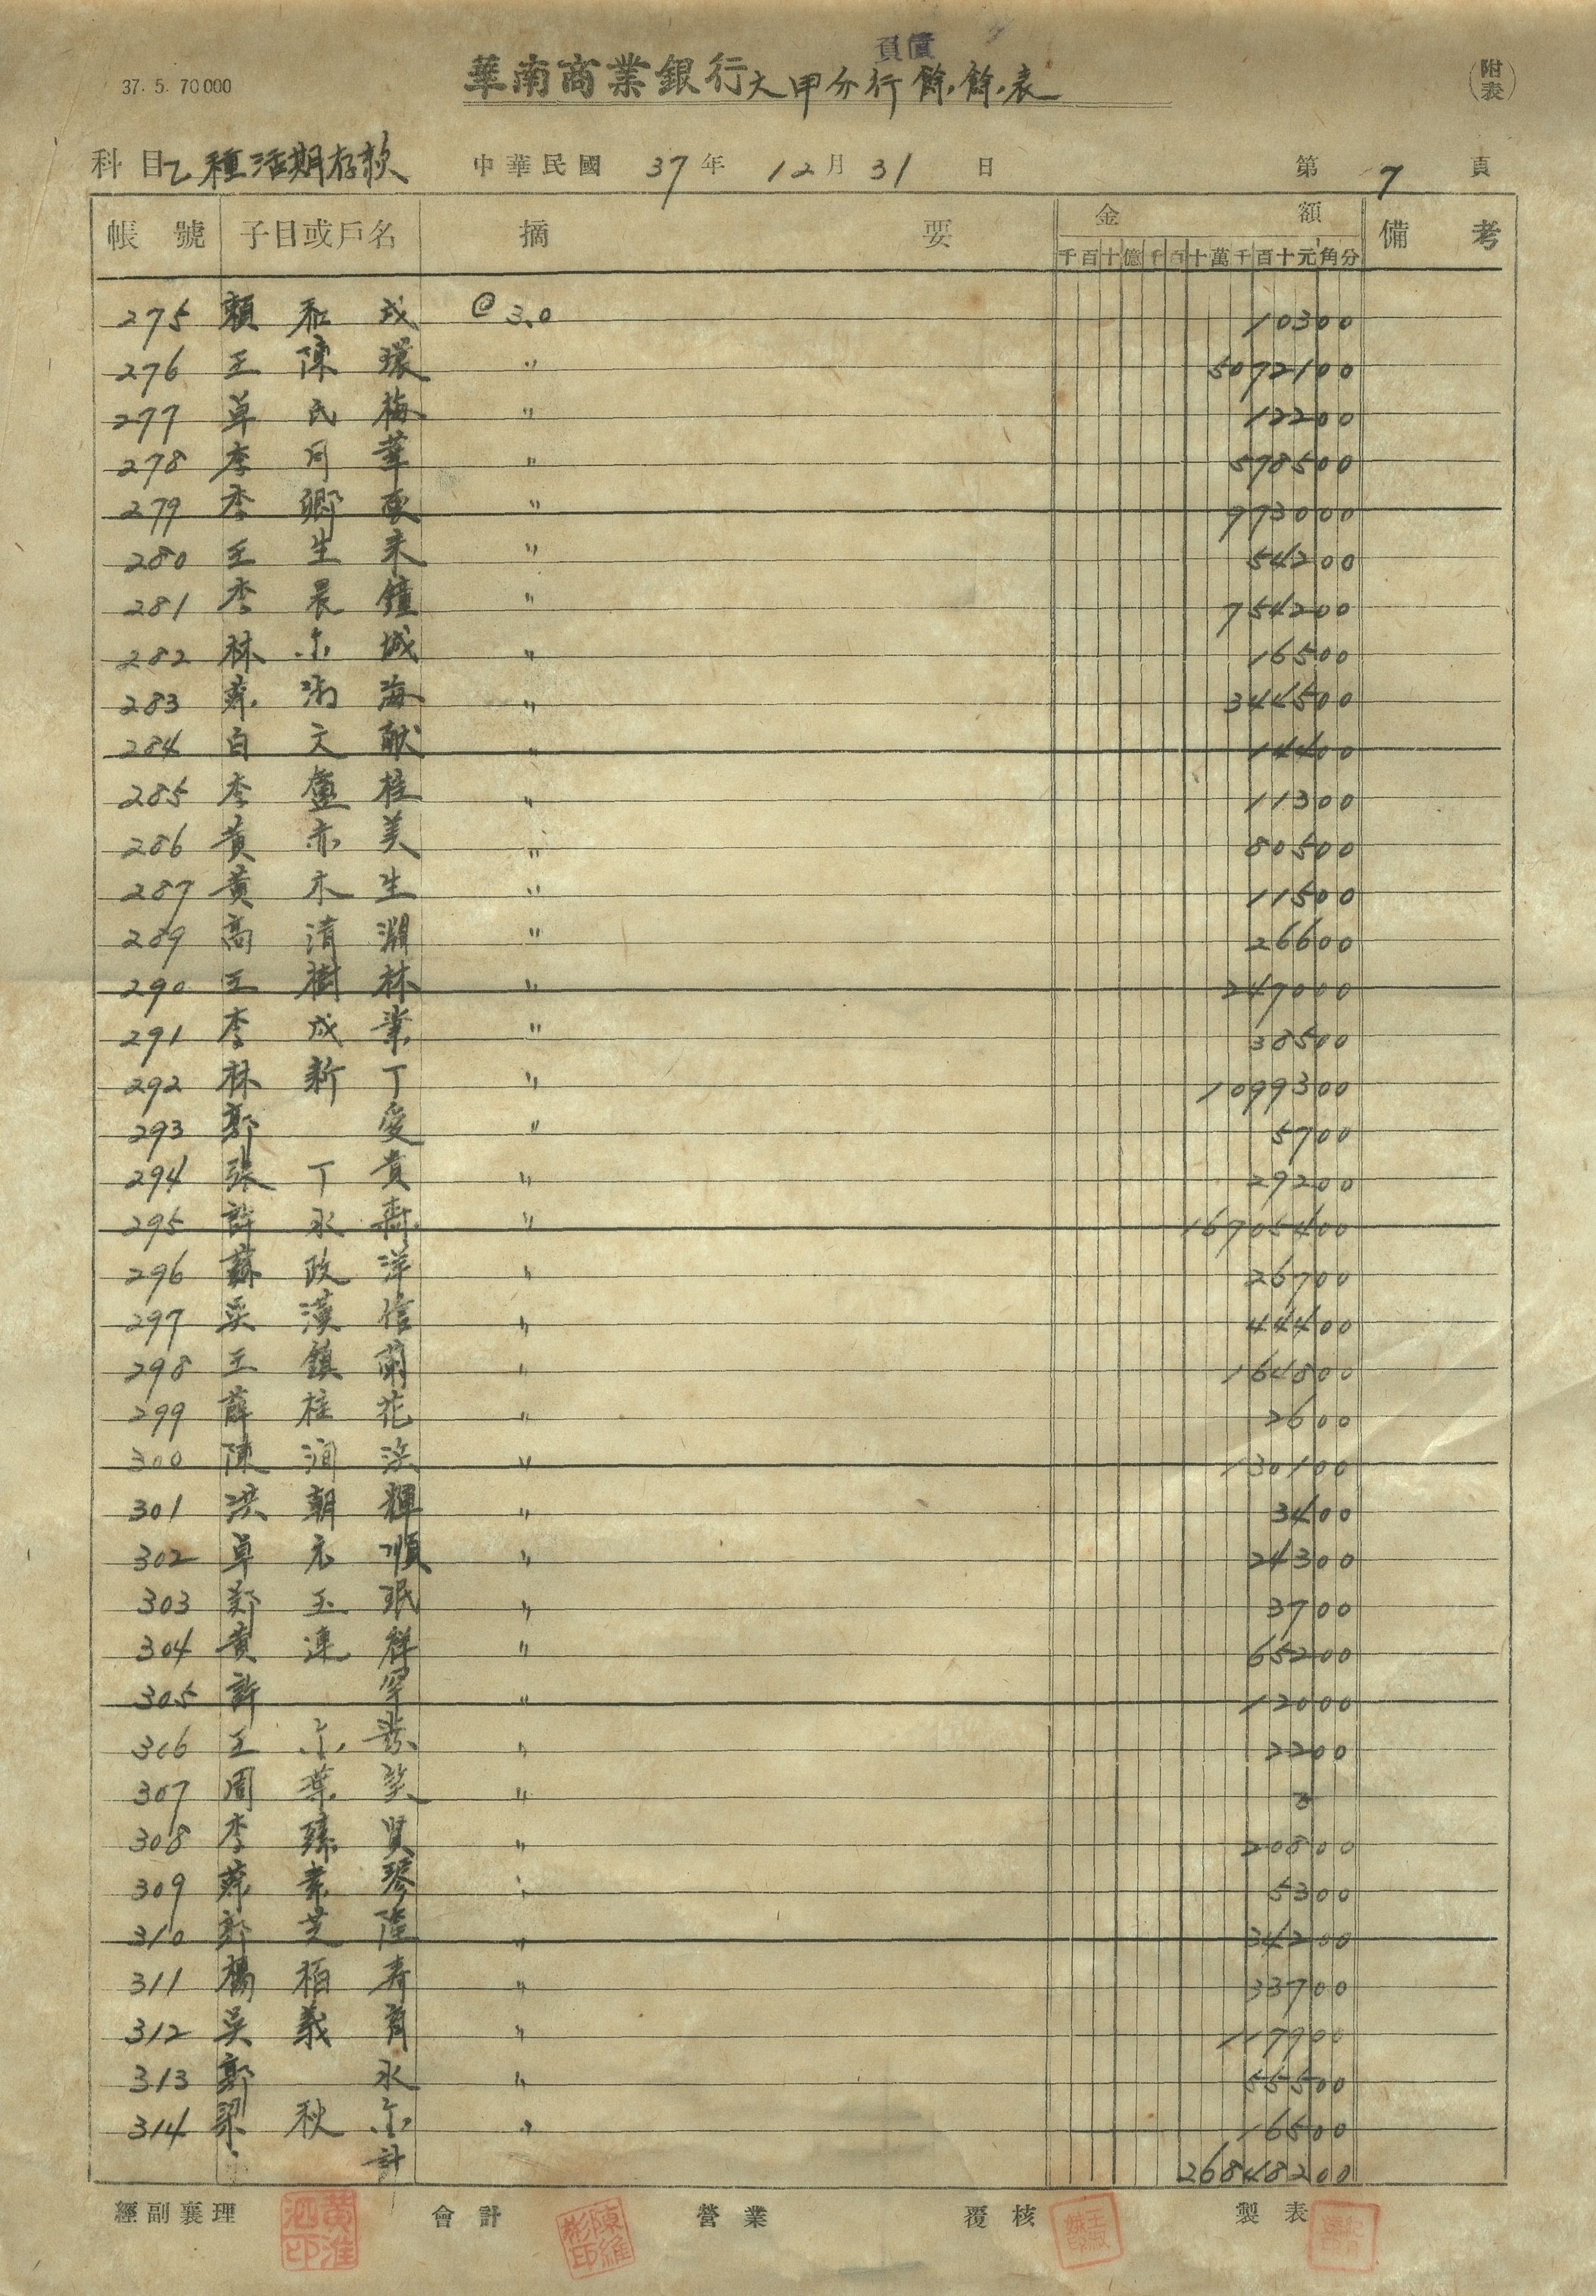 37. 5. 70000
華南商業銀行大甲分行餘餘表
負債
(附表)
科目乙種活期存款 中華民國 37年 12月 31日 第 7 頁
帳號 子目或戶名 摘要 金額 備考
千百十億千百十萬千百十元角分
275 賴和戍 @3.0 10300
276 王陳環 〃 5072100
277 卓民梅 〃 12200
278 李同華 〃 578500
279 李鄉 〃 973000
280 王生來 〃 54200
281 李晨鐘 〃 754200
282 林尔城 〃 16500
283 海 〃 344500
284 白文献 〃 14400
285 李盧桂 〃 11300
286 黃赤美 〃 80500
287 黃木生 〃 11500
289 高清淵 〃 26600
290 王樹林 〃 247000
291 李成業 〃 38500
292 林新丁 〃 1099300
293 郭愛 〃 5700
294 張丁貴 〃 29200
295 許永壽 〃 16705400
296 蘇政洋 〃 26700
297 吳漢信 〃 44400
298 王鎮蘭 〃 164800
299 薛桂花 〃 2600
300 陳 〃 130100
301 洪朝輝 〃 3400
302 卓元順 〃 24300
303 鄭玉珉 〃 3700
304 黃連群 〃 65200
305 許罕 〃 12000
306 王尔 〃 2200
307 周葉笑 〃
308 李臻賢 〃 20800
309 素琴 〃 5300
310 郭芝陸 〃 34200
311 楊栢寿 〃 33700
312 吳義育 〃 117900
313 郭永 〃 55500
314 梁秋尔 〃 16500
計 26848200
經副襄理 會計 營業 覆核 製表
黃淮泗印
陳維彬印